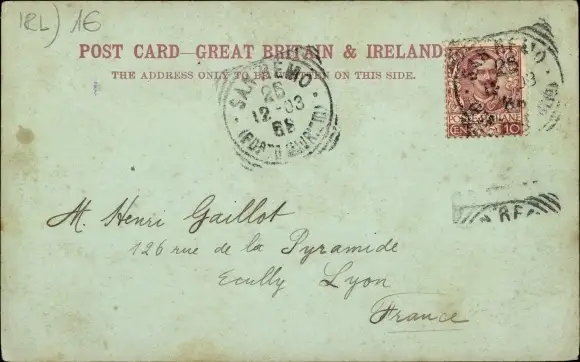 RL) 16
POST CARD—GREAT BRITAIN & IRELAND
THE ADDRESS ONLY TO BE WRITTEN ON THIS SIDE.
SANREMO
26
12-03
(PORTO MAURIZIO)
26
10
M. Henri Gaillot
126 rue de la Pyramide
Ecully Lyon
France